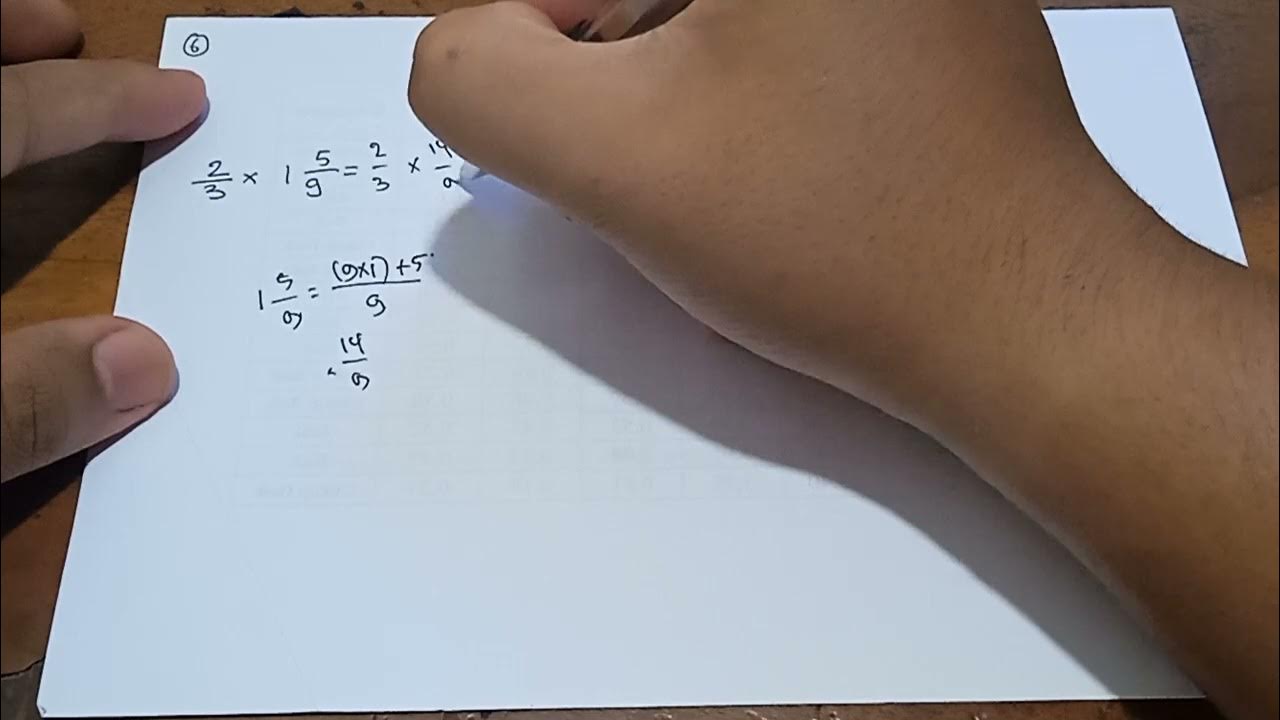 ⑥
2/3 × 1 5/9 = 2/3 × 14/9
1 5/9 = (9×1) + 5 / 9
= 14/9